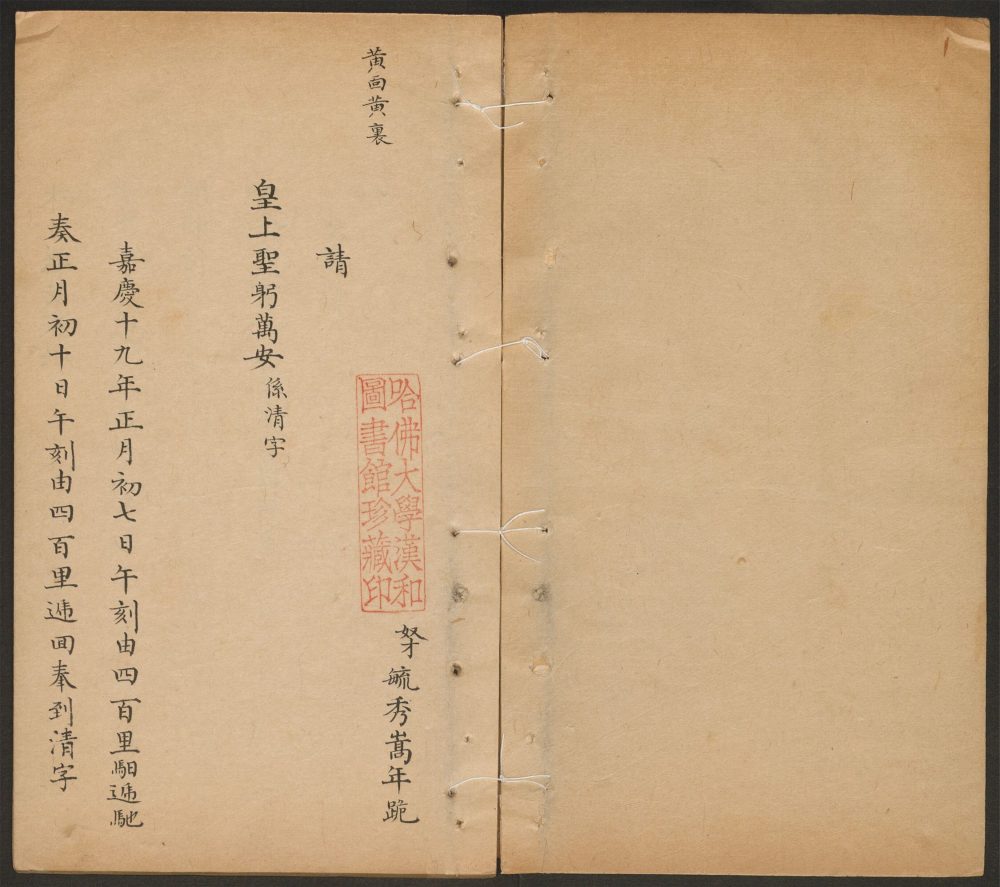 黄面黄裏
奴才毓秀嵩年跪
請
皇上聖躬萬安係清字
嘉慶十九年正月初七日午刻由四百里馹遞馳
奏正月初十日午刻由四百里遞回奉到清字
哈佛大學漢和
圖書館珍藏印